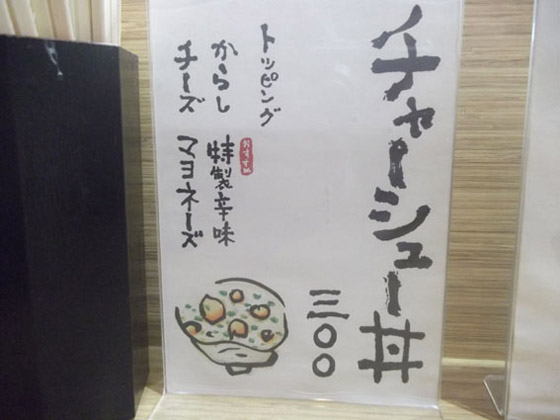 チャーシュー丼
三〇〇
トッピング
からし
おすすめ
特製辛味
チーズ
マヨネーズ